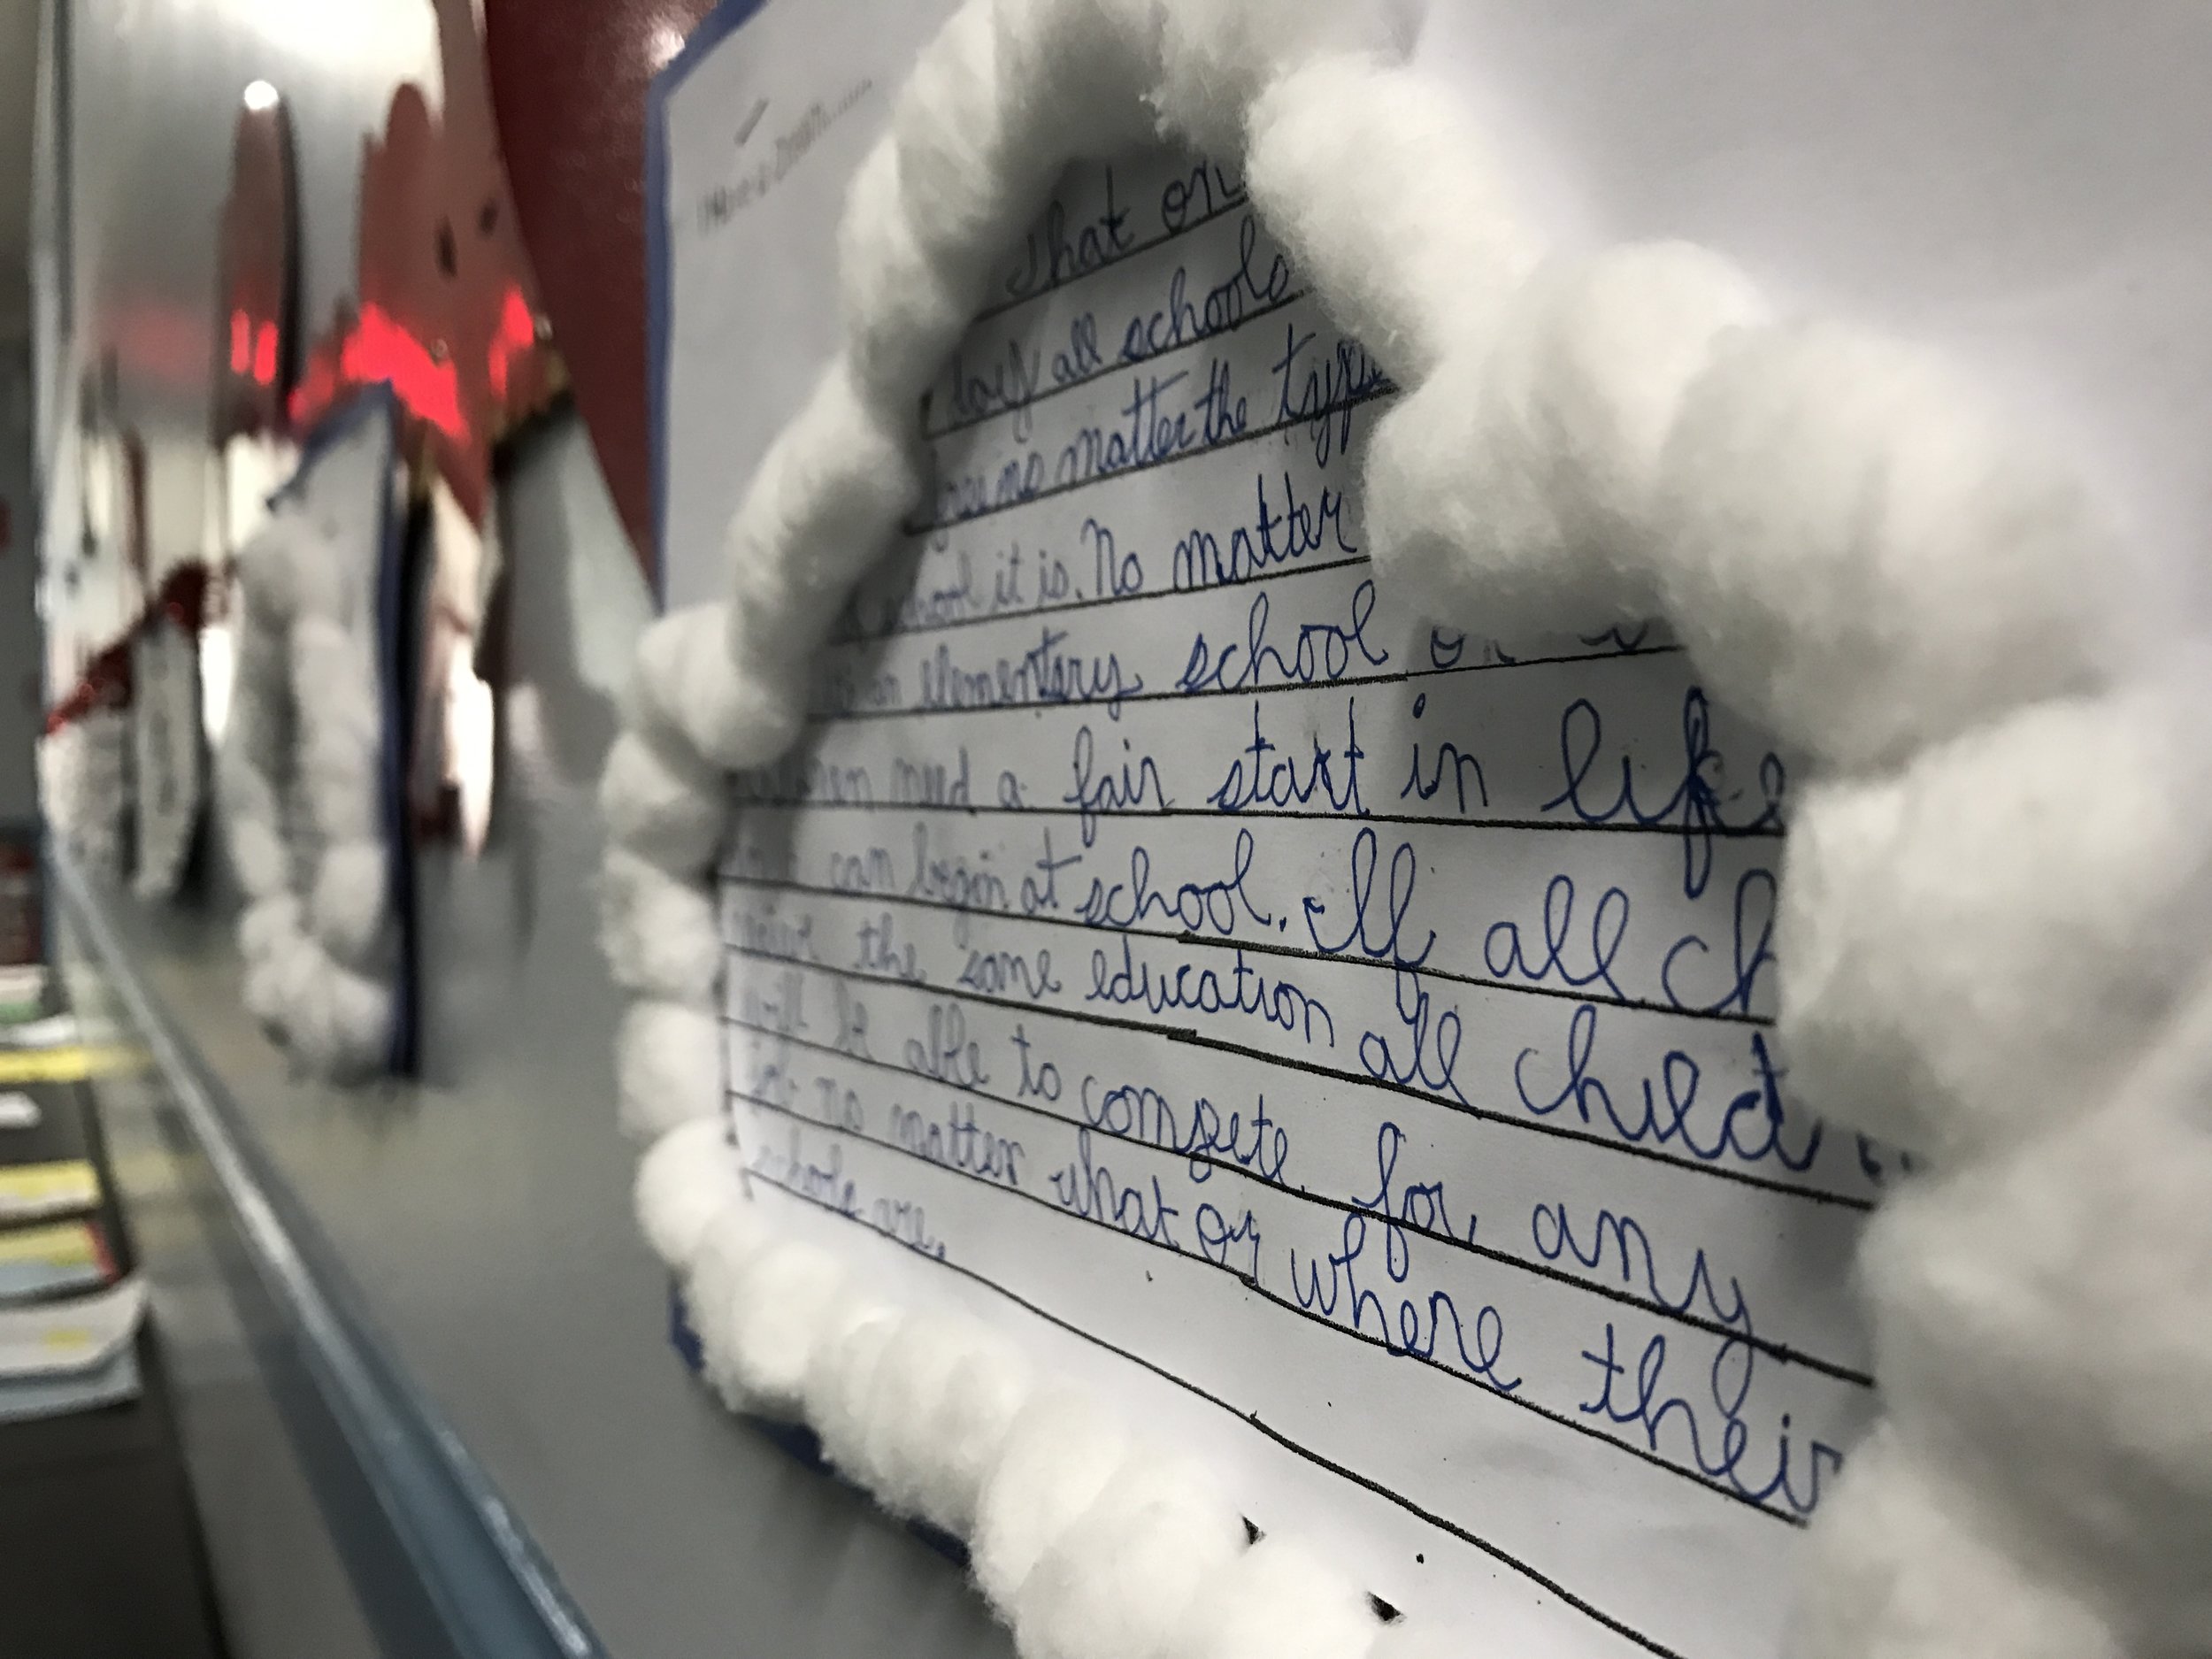 I Have a Dream
that on
day all schools
no matter the type
school it is. No matter
an elementary school
need a fair start in life
can begin at school. If all
the same education all child
will be able to compete for any
job no matter what or where their
schools are.